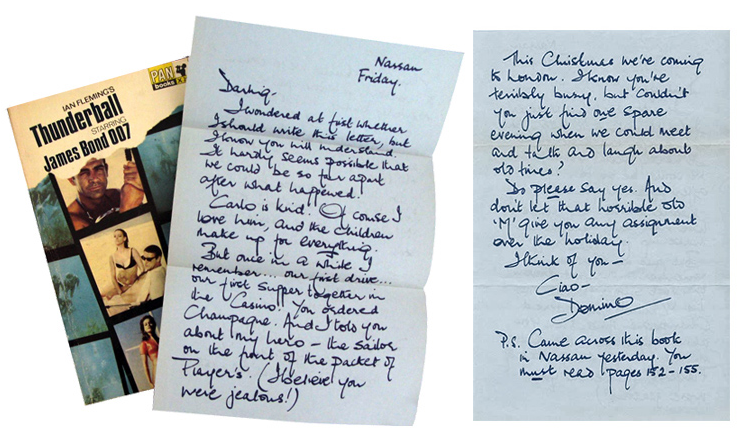 PAN
books
IAN FLEMING'S
Thunderball
STARRING
James Bond 007
Nassau
Friday.
Darling,
I wondered at first whether
I should write this letter, but
I know you will understand.
It hardly seems possible that
we could be so far apart
after what happened.
'Carlo is kind'. Of course I
love him, and the children
make up for everything.
But once in a while I
remember... our first drive...
our first supper together in
the Casino! You ordered
Champagne. And I told you
about my hero – the sailor
on the front of the packet of
Player's. (I believe you
were jealous!)
This Christmas we're coming
to London. I know you're
terribly busy, but couldn't
you just find one spare
evening when we could meet
and talk and laugh about
old times?
Do please say yes. And
don't let that horrible old
'M' give you any assignment
over the holiday.
I think of you –
Ciao –
Domino
P.S. Came across this book
in Nassau yesterday. You
must read pages 152-155.